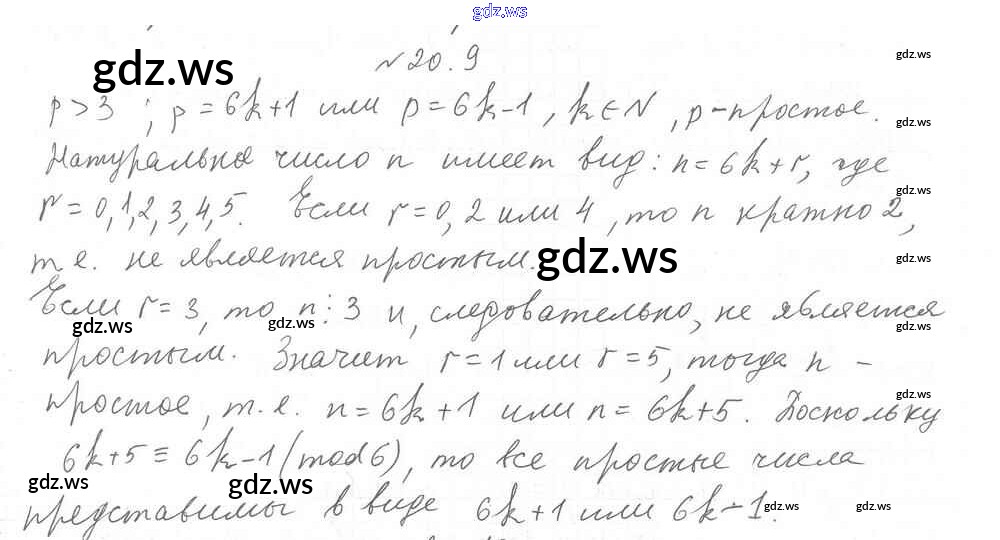 gdz.ws
№20.9
gdz.ws gdz.ws
p>3 ; p=6k+1 или p=6k-1, k∈N, p-простое.
gdz.ws
Натуральное число n имеет вид: n=6k+r, где
gdz.ws
r=0,1,2,3,4,5. Если r=0,2 или 4, то n кратно 2,
т.е. не является простым. gdz.ws gdz.ws
Если r=3, то n⋮3 и, следовательно, не является
gdz.ws gdz.ws gdz.ws
простым. Значит r=1 или r=5, тогда n -
gdz.ws
простое, т.е. n=6k+1 или n=6k+5. Поскольку
6k+5≡6k-1(mod6), то все простые числа
gdz.ws gdz.ws gdz.ws
представимы в виде 6k+1 или 6k-1.
gdz.ws gdz.ws